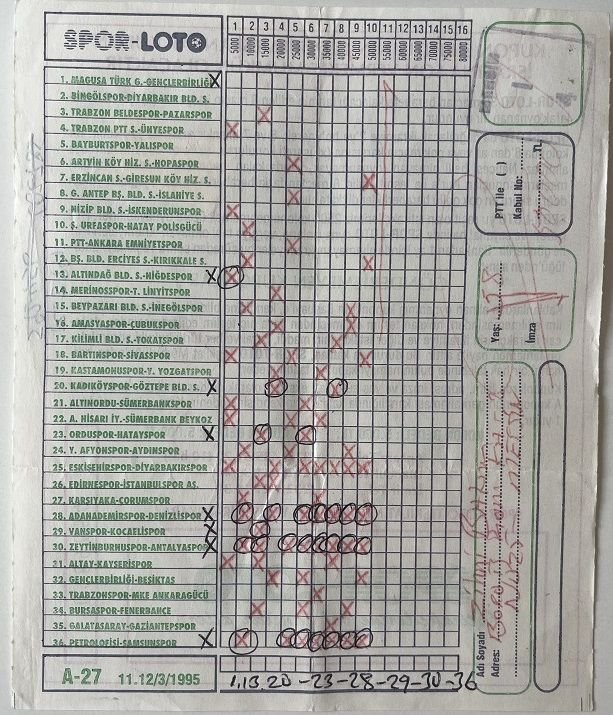 SPOR-LOTO
1 2 3 4 5 6 7 8 9 10 11 12 13 14 15 16
5000 10000 15000 20000 25000 30000 35000 40000 45000 50000 55000 60000 65000 70000 75000 80000
1. MAGUSA TÜRK G.-GENÇLERBİRLİĞİ
2. BİNGÖLSPOR-DİYARBAKIR BLD. S.
3. TRABZON BELDESPOR-PAZARSPOR
4. TRABZON PTT S.-ÜNYESPOR
5. BAYBURTSPOR-YALISPOR
6. ARTVİN KÖY HİZ. S.-HOPASPOR
7. ERZİNCAN S.-GİRESUN KÖY HİZ.
8. G. ANTEP BŞ. BLD. S.-ISLAHİYE S.
9. NİZİP BLD. S.-İSKENDERUNSPOR
10. Ş. URFASPOR-HATAY POLİSGÜCÜ
11. PTT-ANKARA EMNİYETSPOR
12. BŞ. BLD. ERCİYES S.-KIRIKKALE S.
13. ALTINDAĞ BLD. S.-NİĞDESPOR
14. MERİNOSSPOR-T. LİNYİTSPOR
15. BEYPAZARI BLD. S.-İNEGÖLSPOR
16. AMASYASPOR-ÇUBUKSPOR
17. KİLİMLİ BLD. S.-TOKATSPOR
18. BARTINSPOR-SİVASSPOR
19. KASTAMONUSPOR-Y. YOZGATSPOR
20. KADIKÖYSPOR-GÖZTEPE BLD. S.
21. ALTINORDU-SÜMERBANKSPOR
22. A. HİSARI İY.-SÜMERBANK BEYKOZ
23. ORDUSPOR-HATAYSPOR
24. Y. AFYONSPOR-AYDINSPOR
25. ESKİŞEHİRSPOR-DİYARBAKIRSPOR
26. EDİRNESPOR-İSTANBULSPOR AS.
27. KARŞIYAKA-ÇORUMSPOR
28. ADANADEMİRSPOR-DENİZLİSPOR
29. VANSPOR-KOCAELİSPOR
30. ZEYTİNBURNUSPOR-ANTALYASPOR
31. ALTAY-KAYSERİSPOR
32. GENÇLERBİRLİĞİ-BEŞİKTAŞ
33. TRABZONSPOR-MKE ANKARAGÜCÜ
34. BURSASPOR-FENERBAHÇE
35. GALATASARAY-GAZİANTEPSPOR
36. PETROLOFİSİ-SAMSUNSPOR
A-27 11.12/3/1995
1,13.20-23-28-29-30-36
PTT ile ( )
Kabul No:
TL
Yaş:
İmza
Adı Soyadı
Adres: